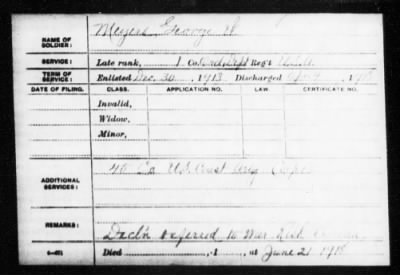 NAME OF SOLDIER: Meyers George H
SERVICE: Late rank, 1 Co. Regt
TERM OF SERVICE: Enlisted Dec. 30, 1913 Discharged 191
DATE OF FILING. CLASS. APPLICATION NO. LAW CERTIFICATE NO.
Invalid,
Widow,
Minor,
ADDITIONAL SERVICES: 40 Co U.S. Coast Corps
REMARKS: Decl'n referred to War Risk
Died , 1 , at June 21 1918